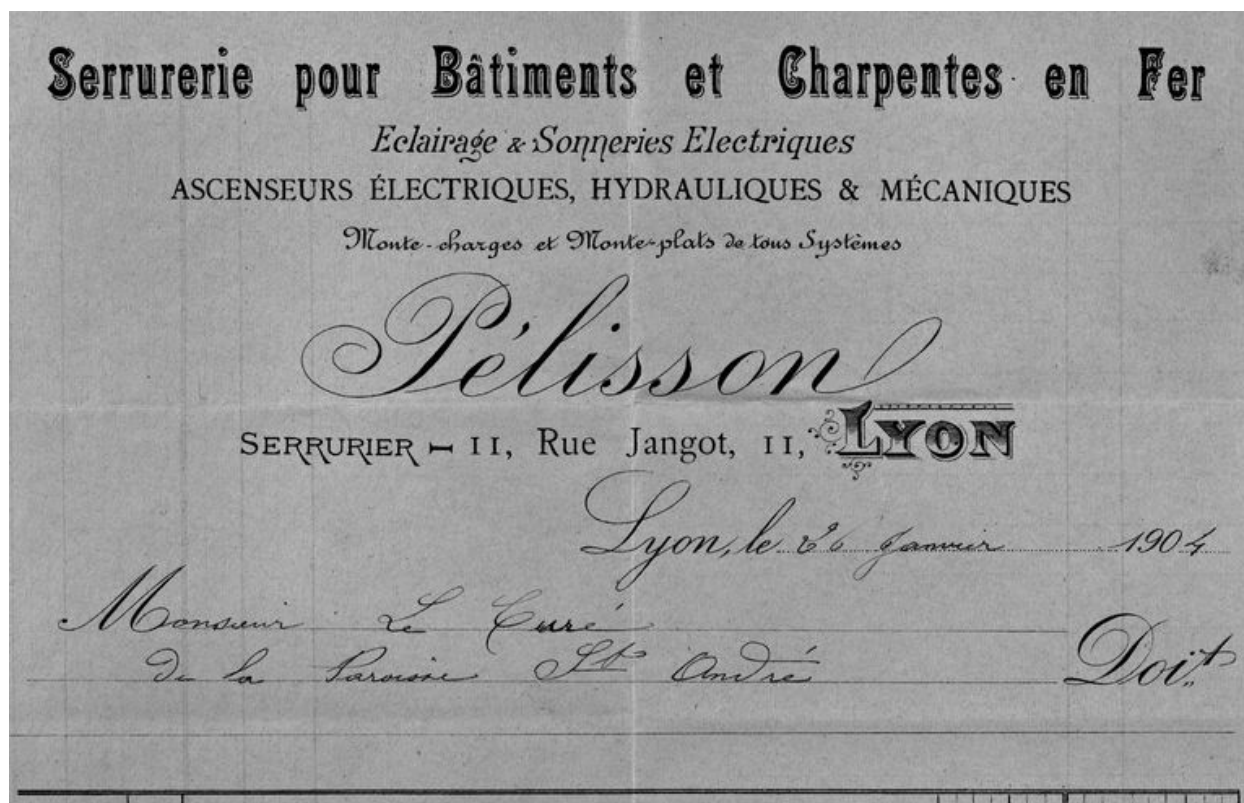 Serrurerie pour Bâtiments et Charpentes en Fer
Eclairage & Sonneries Electriques
ASCENSEURS ÉLECTRIQUES, HYDRAULIQUES & MÉCANIQUES
Monte-charges et Monte-plats de tous Systèmes
Pélisson
SERRURIER - 11, Rue Jangot, 11, LYON
Lyon, le 26 Janvier 1904
Monsieur Le Curé
de la Paroisse St André Doit